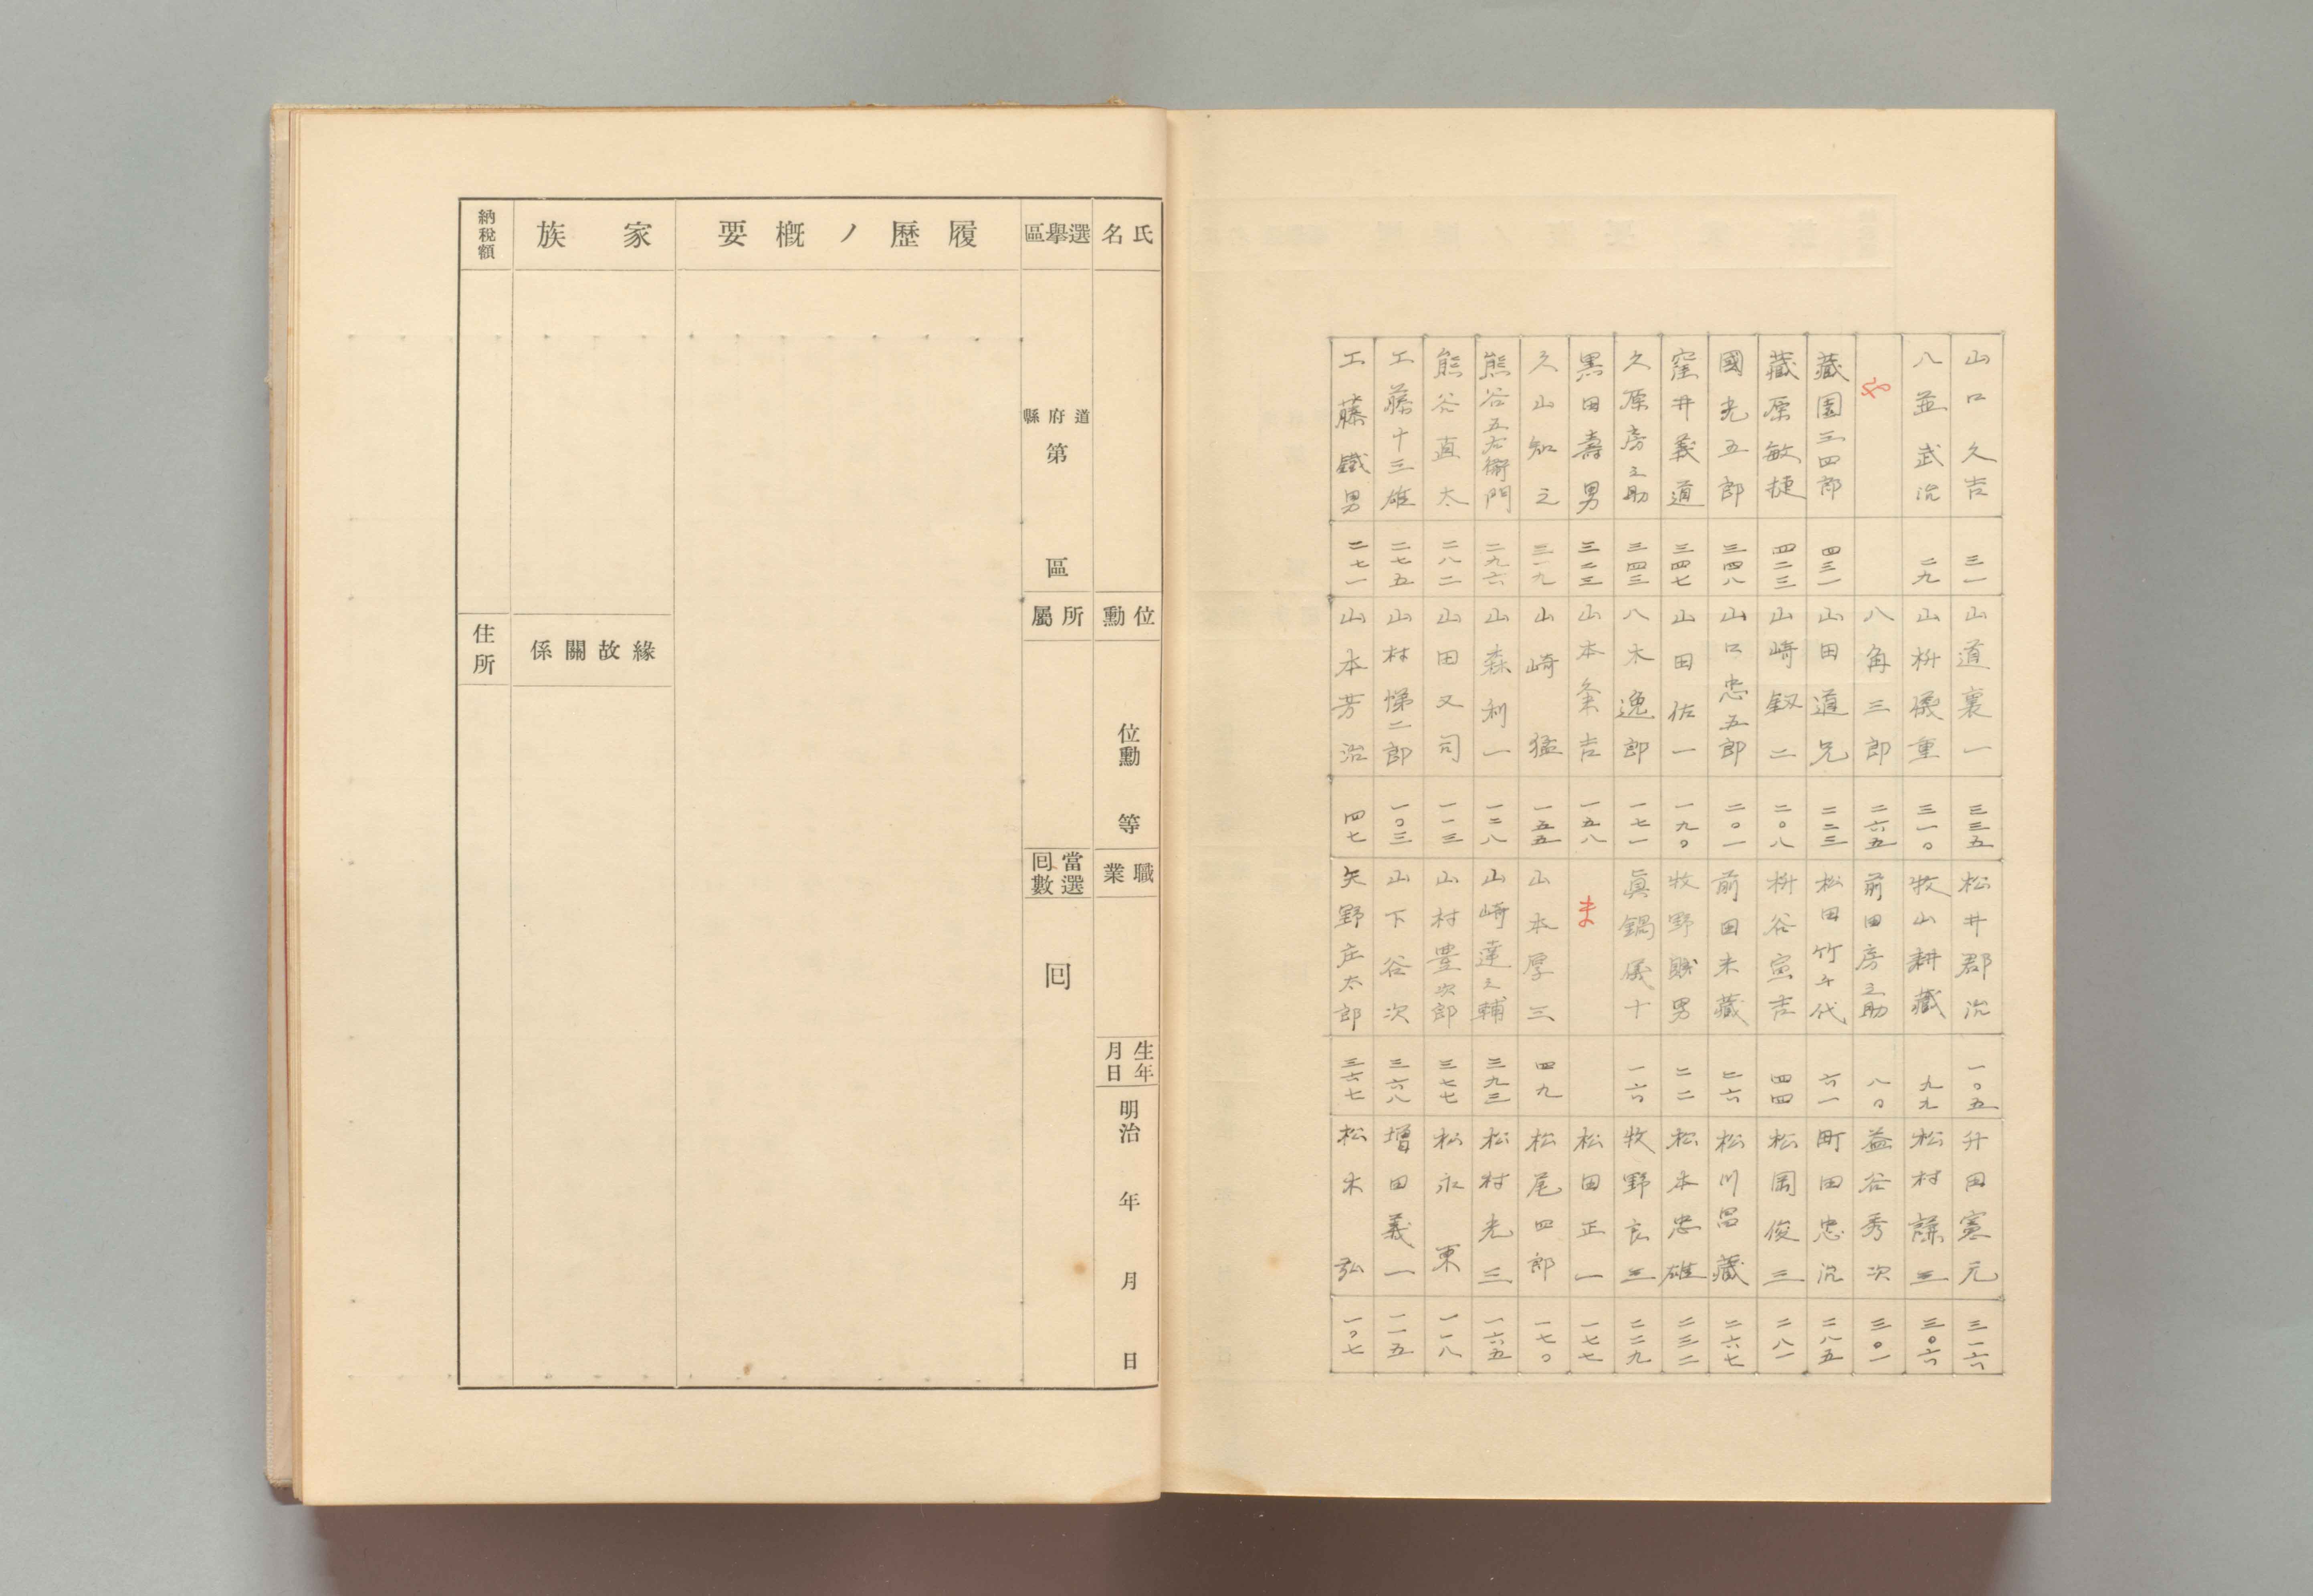 工藤鐵男 二七一
工藤十三雄 二七五
熊谷直太 二八二
熊谷五右衞門 二九六
久山知之 三一九
黒田壽男 三二三
久原房之助 三四三
窪井義道 三四七
國光五郎 三四八
藏原敏捷 四二三
藏園三四郎 四三一
や
八並武治 二九
山口久吉 三一
山本芳治 四七
山村悌二郎 一〇三
山田又司 一一三
山森利一 一二八
山崎猛 一五五
山本粂吉 一五八
八木逸郎 一七一
山田佐一 一九〇
山口忠五郎 二〇一
山崎釼二 二〇八
山田道兄 二二三
八角三郎 二六五
山枡儀重 三一〇
山道襄一 三三五
矢野庄太郎 三六七
山下谷次 三六八
山村豊次郎 三七七
山崎達之輔 三九三
山本厚三 四九
ま
眞鍋儀十 一六
牧野賤男 二二
前田米藏 二六
枡谷寅吉 四四
松田竹千代 六一
前田房之助 八〇
牧山耕藏 九九
松井郡治 一〇五
松木弘 一〇七
增田義一 一一五
松永東 一一八
松村光三 一六五
松尾四郎 一七〇
松田正一 一七七
牧野良三 二二九
松本忠雄 二三二
松川昌藏 二六七
松岡俊三 二八一
町田忠治 二八五
益谷秀次 三〇一
松村謙三 三〇六
升田憲元 三一六
氏名
位勳
位勳 等
職業
生年月日
明治 年 月 日
選擧區
道府縣
第 區
所屬
當選囘數
囘
履歷ノ槪要
家族
緣故關係
納稅額
住所